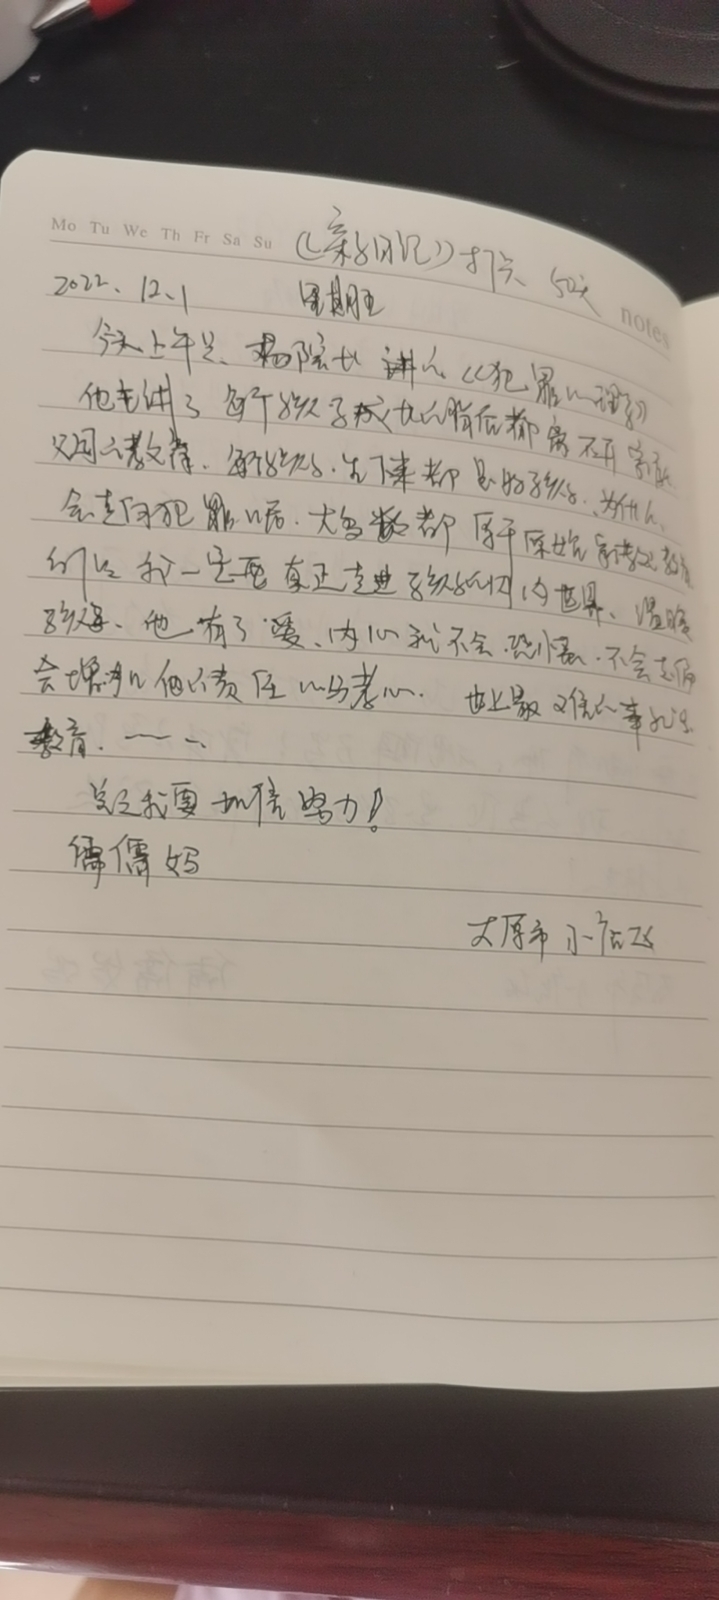 Mo Tu We Th Fr Sa Su 《亲子日记》打卡 50天
notes
2022.12.1 星期四
今天上午是杨院长讲的《犯罪心理学》
他主讲了每个孩子成长的背后都离不开家庭
父母的教育。每个孩子生下来都是好孩子.为什么
会走向犯罪呢.大多数都源于原始家庭
所以我一定要真正走进孩子的内世界、温暖
孩子.他有了爱、内心就不会恐惧.不会走偏
会增加他的责任心与孝心. 世上最难的事就是
教育.……
总之我要加倍努力!
儒儒妈
太原市 小店区